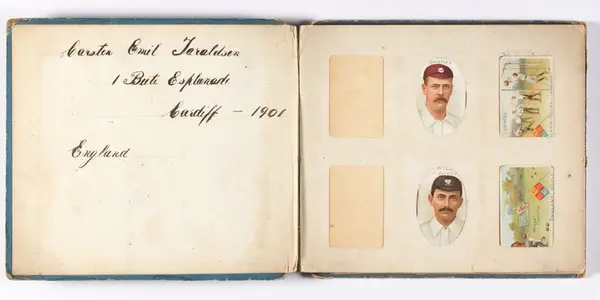 Carsten Emil Taraldsen
1 Bute Esplanade
Cardiff - 1901
England
WILLS'